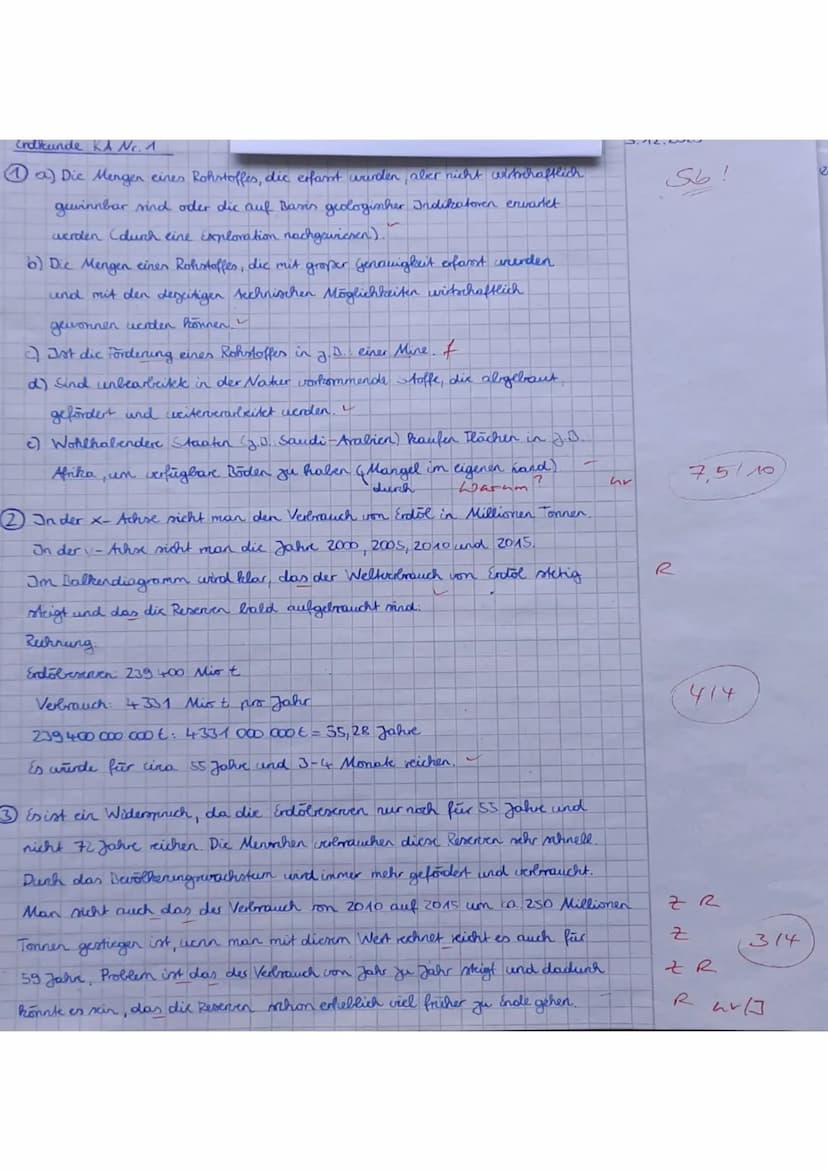 Erdkunde KA Nr. 1
Sb!
① a) Die Mengen eines Rohstoffes, die erfasst wurden, aber nicht wirtschaftlich
gewinnbar sind oder die auf Basis geologischer Indikatoren erwartet
werden (durch eine Exploration nachgewiesen).
b) Die Mengen eines Rohstoffes, die mit großer Genauigkeit erfasst wurden
und mit den derzeitigen technischen Möglichkeiten wirtschaftlich
gewonnen werden können.
c) Ist die Förderung eines Rohstoffes in z.B. einer Mine. f
d) Sind unbearbeitet in der Natur vorkommende Stoffe, die abgebaut,
gefördert und weiterverarbeitet werden.
e) Wohlhabendere Staaten (z.B. Saudi-Arabien) kaufen Flächen in z.B.
Afrika, um verfügbare Böden zu haben (Mangel im eigenen Land)
durch Warum? hv 7,5/10
② In der x-Achse sieht man den Verbrauch von Erdöl in Millionen Tonnen.
In der -Achse sieht man die Jahre 2000, 2005, 2010 und 2015.
Im Balkendiagramm wird klar, das der Weltverbrauch von Erdöl stetig R
steigt und das die Reserven bald aufgebraucht sind.
Rechnung:
Erdölreserven: 239 400 Mio t
Verbrauch: 4331 Mio t pro Jahr 4/4
239 400 000 000 t : 4331 000 000 t = 55,28 Jahre
Es würde für circa 55 Jahre und 3-4 Monate reichen.
③ Es ist ein Widerspruch, da die Erdölreserven nur noch für 55 Jahre und
nicht 72 Jahre reichen. Die Menschen verbrauchen diese Reserven sehr schnell.
Durch das Bevölkerungswachstum wird immer mehr gefördert und verbraucht.
Man sieht auch das der Verbrauch von 2010 auf 2015 um ca. 250 Millionen Z R
Tonnen gestiegen ist, wenn man mit diesem Wert rechnet reicht es auch für Z 3/4
59 Jahre. Problem ist das der Verbrauch von Jahr zu Jahr steigt und dadurch Z R
könnte es sein, das die Reserven schon erheblich viel früher zu Ende gehen. R